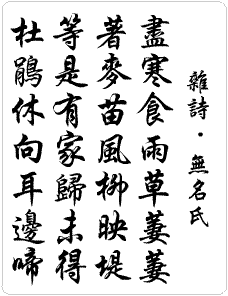 雜詩·無名氏
盡寒食雨草萋萋
著麥苗風柳映堤
等是有家歸未得
杜鵑休向耳邊啼